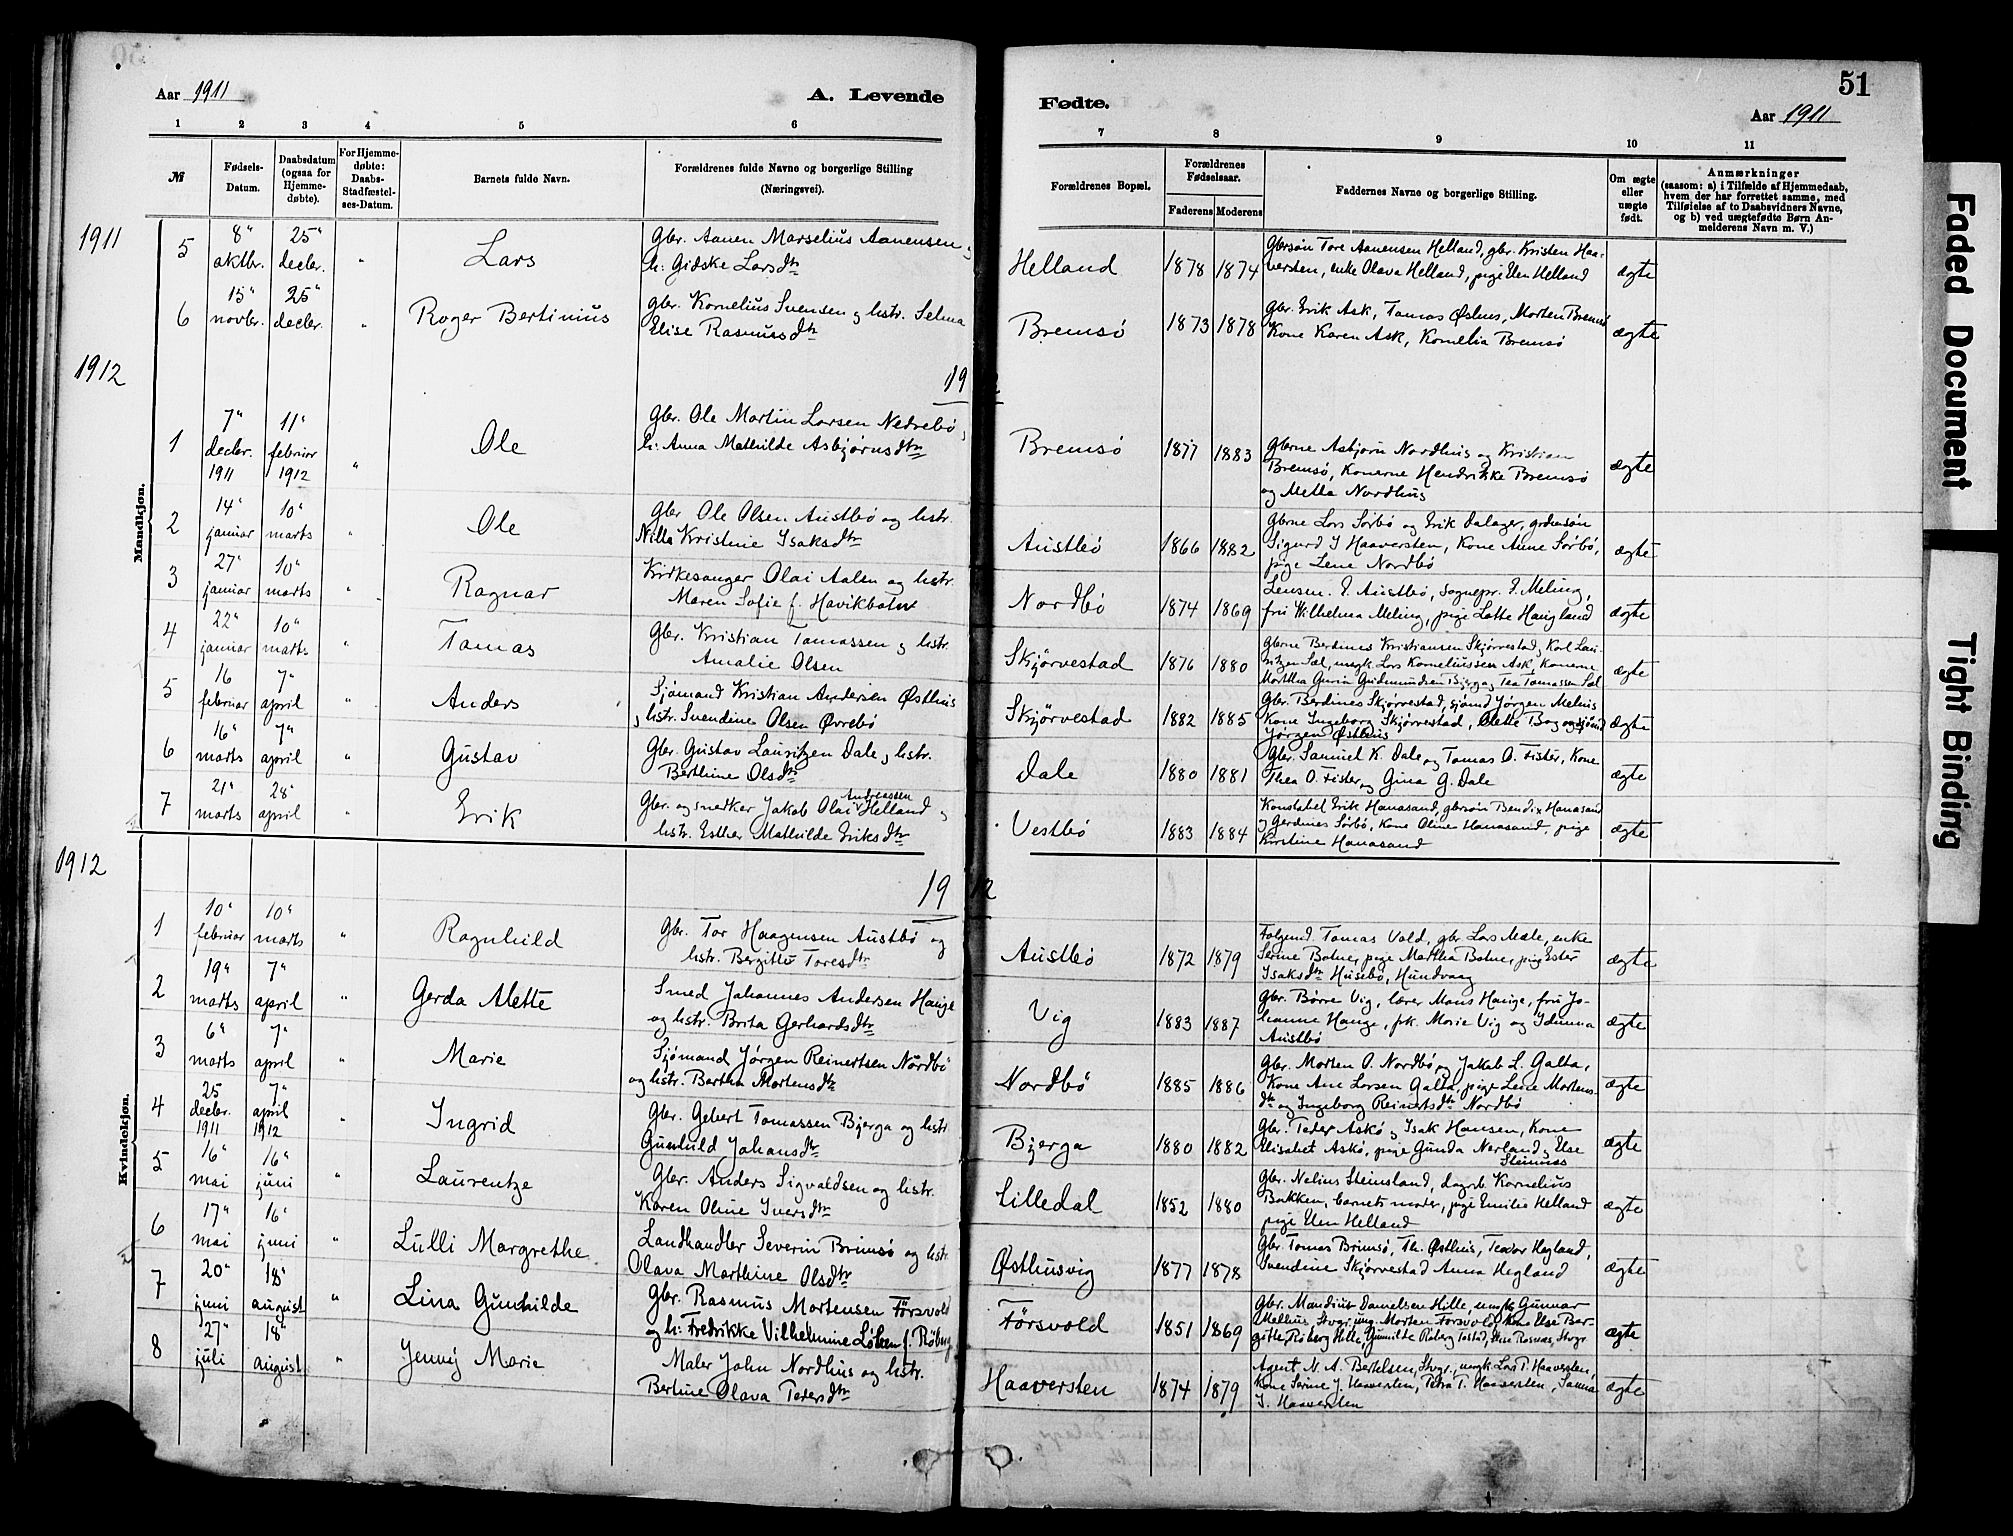 51
Aar 1911
A. Levende
Fødte.
Aar 1911
1 2 3 4 5 6 7 8 9 10 11
№
Fødsels-
Datum.
Daabsdatum
(ogsaa for
Hjemme-
døbte).
For Hjemme-
døbte:
Daabs-
Stadfæstel-
ses-Datum.
Barnets fulde Navn.
Forældrenes fulde Navne og borgerlige Stilling
(Næringsvei).
Forældrenes Bopæl.
Forældrenes
Fødselsaar.
Faderens Moderens
Faddernes Navne og borgerlige Stilling.
Om ægte
eller
uægte
født.
Anmærkninger
(saasom: a) i Tilfælde af Hjemmedaab,
hvem der har forrettet samme, med
Tilføielse af to Daabsvidners Navne,
og b) ved uægtefødte Børn An-
melderens Navn m. V.)
Mandkjøn.
1911
5 8" oktbr. 25" decbr. " Lars
Gbr. Aanen Marselius Aanensen og
h: Gidske Larsdtr
Helland 1878 1874
Gbrsøn Tore Aanensen Helland, gbr. Kristen Haa-
versten, enke Olava Helland, pige Elen Helland
ægte
6 15" novbr. 25" decbr. " Roger Bertinius
Gbr. Kornelius Svensen og hstr. Selma
Elise Rasmusdtr
Bremsø 1873 1878
Gbr. Erik Ask, Tomas Østhus, Morten Bremsø
Kone Karen Ask, Kornelia Bremsø
ægte
1912
1912
1 7" decbr. 1911 11" februar 1912 " Ole
Gbr. Ole Martin Larsen Nedrebø,
h: Anna Mathilde Asbjørnsdtr
Bremsø 1877 1883
Gbrne Asbjørn Nordhus og Kristian
Bremsø, Konerne Hendrikke Bremsø
og Metta Nordhus
ægte
2 14" januar 10" marts " Ole
Gbr Ole Olsen Austbø og hstr.
Nilla Kristine Isaksdtr
Austbø 1866 1882
Gbrne Lars Sørbø og Erik Dalager,
Sigurd I Haaversten, Kone Anne Sørbø,
pige Lene Nordbø
ægte
3 27" januar 10" marts " Ragnar
Kirkesanger Olai Aalen og hstr.
Maren Sofie f. Havikbotn
Nordbø 1874 1869
Lensm. Austbø, Sognepr. Meling,
fru Wilhelma Meling, pige Lotte Haugland
ægte
4 22" januar 10" marts " Tomas
Gbr. Kristian Tomassen og hstr.
Amalie Olsen
Skjørvestad 1876 1880
Gbrne Berdines Kristiansen Skjørvestad, Karl Lau-
ritzen Sæl, ungk Lars Korneliussen Ask, Konerne
Marthe Guria Gudmundsen Bjerga og Tea Tomassen Sæl
ægte
5 16 februar 7" april " Anders
Sjømand Kristian Andersen Østhus
, hstr. Svendine Olsen Øvrebø
Skjørvestad 1882 1885
Gbr. Berdines Skjørvestad, sjømd Jørgen Melius
Kone Ingeborg Skjørvestad,
Jørgen Østhus
ægte
6 16" marts 7" april " Gustav
Gbr. Gustav Lauritzen Dale, hstr.
Berthine Olsdtr
Dale 1880 1881
Gbr. Samuel K. Dale og Tomas O. Fister, Kone
Thea O. Fister, og Gina G. Dale
ægte
7 21" marts 28" april " Erik
Gbr. og snedker Jakob Olai Andreassen Helland og
hstr. Esther Mathilde Eriksdtr
Vestbø 1883 1884
Konstabel Erik Hanasand, gbrsøn Bendix Hanasand
og Gerdines Sørbø, Kone Oline Hanasand, pige
Kirstine Hanasand
ægte
1912
1912
Kvindekjøn.
1 10" februar 10" marts " Ragnhild
Gbr. Tor Haagensen Austbø og
hstr. Bergitte Toresdtr
Austbø 1872 1879
Folgemd. Tomas Vold, gbr Lars Mæle, enke
Serine Botne, pige Martha Botne, pige Ester
Isaksdtr Husebø, Hundvaag
ægte
2 19" marts 7" april " Gerda Alette
Smed Johannes Andersen Hauge
og hstr. Brita Gerhardsdtr
Vig 1883 1887
Gbr. Børre Vig, lærer Mons Hauge, fru Jo-
hanne Hauge, frk. Marie Vig og Idunna
Austbø
ægte
3 6" marts 7" april " Marie
Sjømand Jørgen Reinertsen Nordbø
og hstr. Bertha Mortensdtr
Nordbø 1885 1886
Gbr. Morten O. Nordbø og Jakob L. Galta,
Kone Ane Larsen Galta, pige Lene Mortens-
dtr og Ingeborg Reinertsdtr Nordbø
ægte
4 25 decbr. 1911 7" april 1912 " Ingrid
Gbr. Gebert Tomassen Bjerga og hstr
Gunhild Johansdtr
Bjerga 1880 1882
Gbr. Peder Askø, Isak Hansen, Kone
Elisabet Askø, pige Gunda Nerland, Else
Steinnes
ægte
5 16" mai 16" juni " Laurentze
Gbr. Anders Sigvaldsen og hstr.
Karen Oline Iversdtr
Lilledal 1852 1880
Gbr. Nelius Steinsland, dagarb. Kornelius
Bakken, barnets moder, pige Emilie Helland
pige Elen Helland
ægte
6 17" mai 16" juni " Lulli Margrethe
Landhandler Severin Brimsø og hstr.
Olava Marthine Olsdtr
Østhusvig 1877 1878
Gbr. Tomas Brimsø, Th. Østhus, Teodor Hegland,
Svendine Skjørvestad Anna Hegland
ægte
7 20" juni 18" august " Lina Gunhilde
Gbr. Rasmus Mortensen Førsvold
og h: Fredrikke Vilhelmine Løken f. Røberg
Førsvold 1851 1869
Gbr. Mandius Danielsen Hille, ungk Gunnar
Mellius Stvgr, ung. Morten Førsvold, Kone Else Ber-
gitte Røberg Hille, Gunilde Røberg Tostad, Stvgr
ægte
8 27" juli 18" august " Jenny Marie
Maler John Nordhus og hstr.
Bertine Olava Pedersdtr
Haaversten 1874 1879
Agent N. A. Bertelsen, Stvgr, ungk Lars T. Haaversten,
Kone Serine J. Haaversten, Petra T. Haaversten, Sanna
I. Haaversten
ægte
Faded Document
Tight Binding